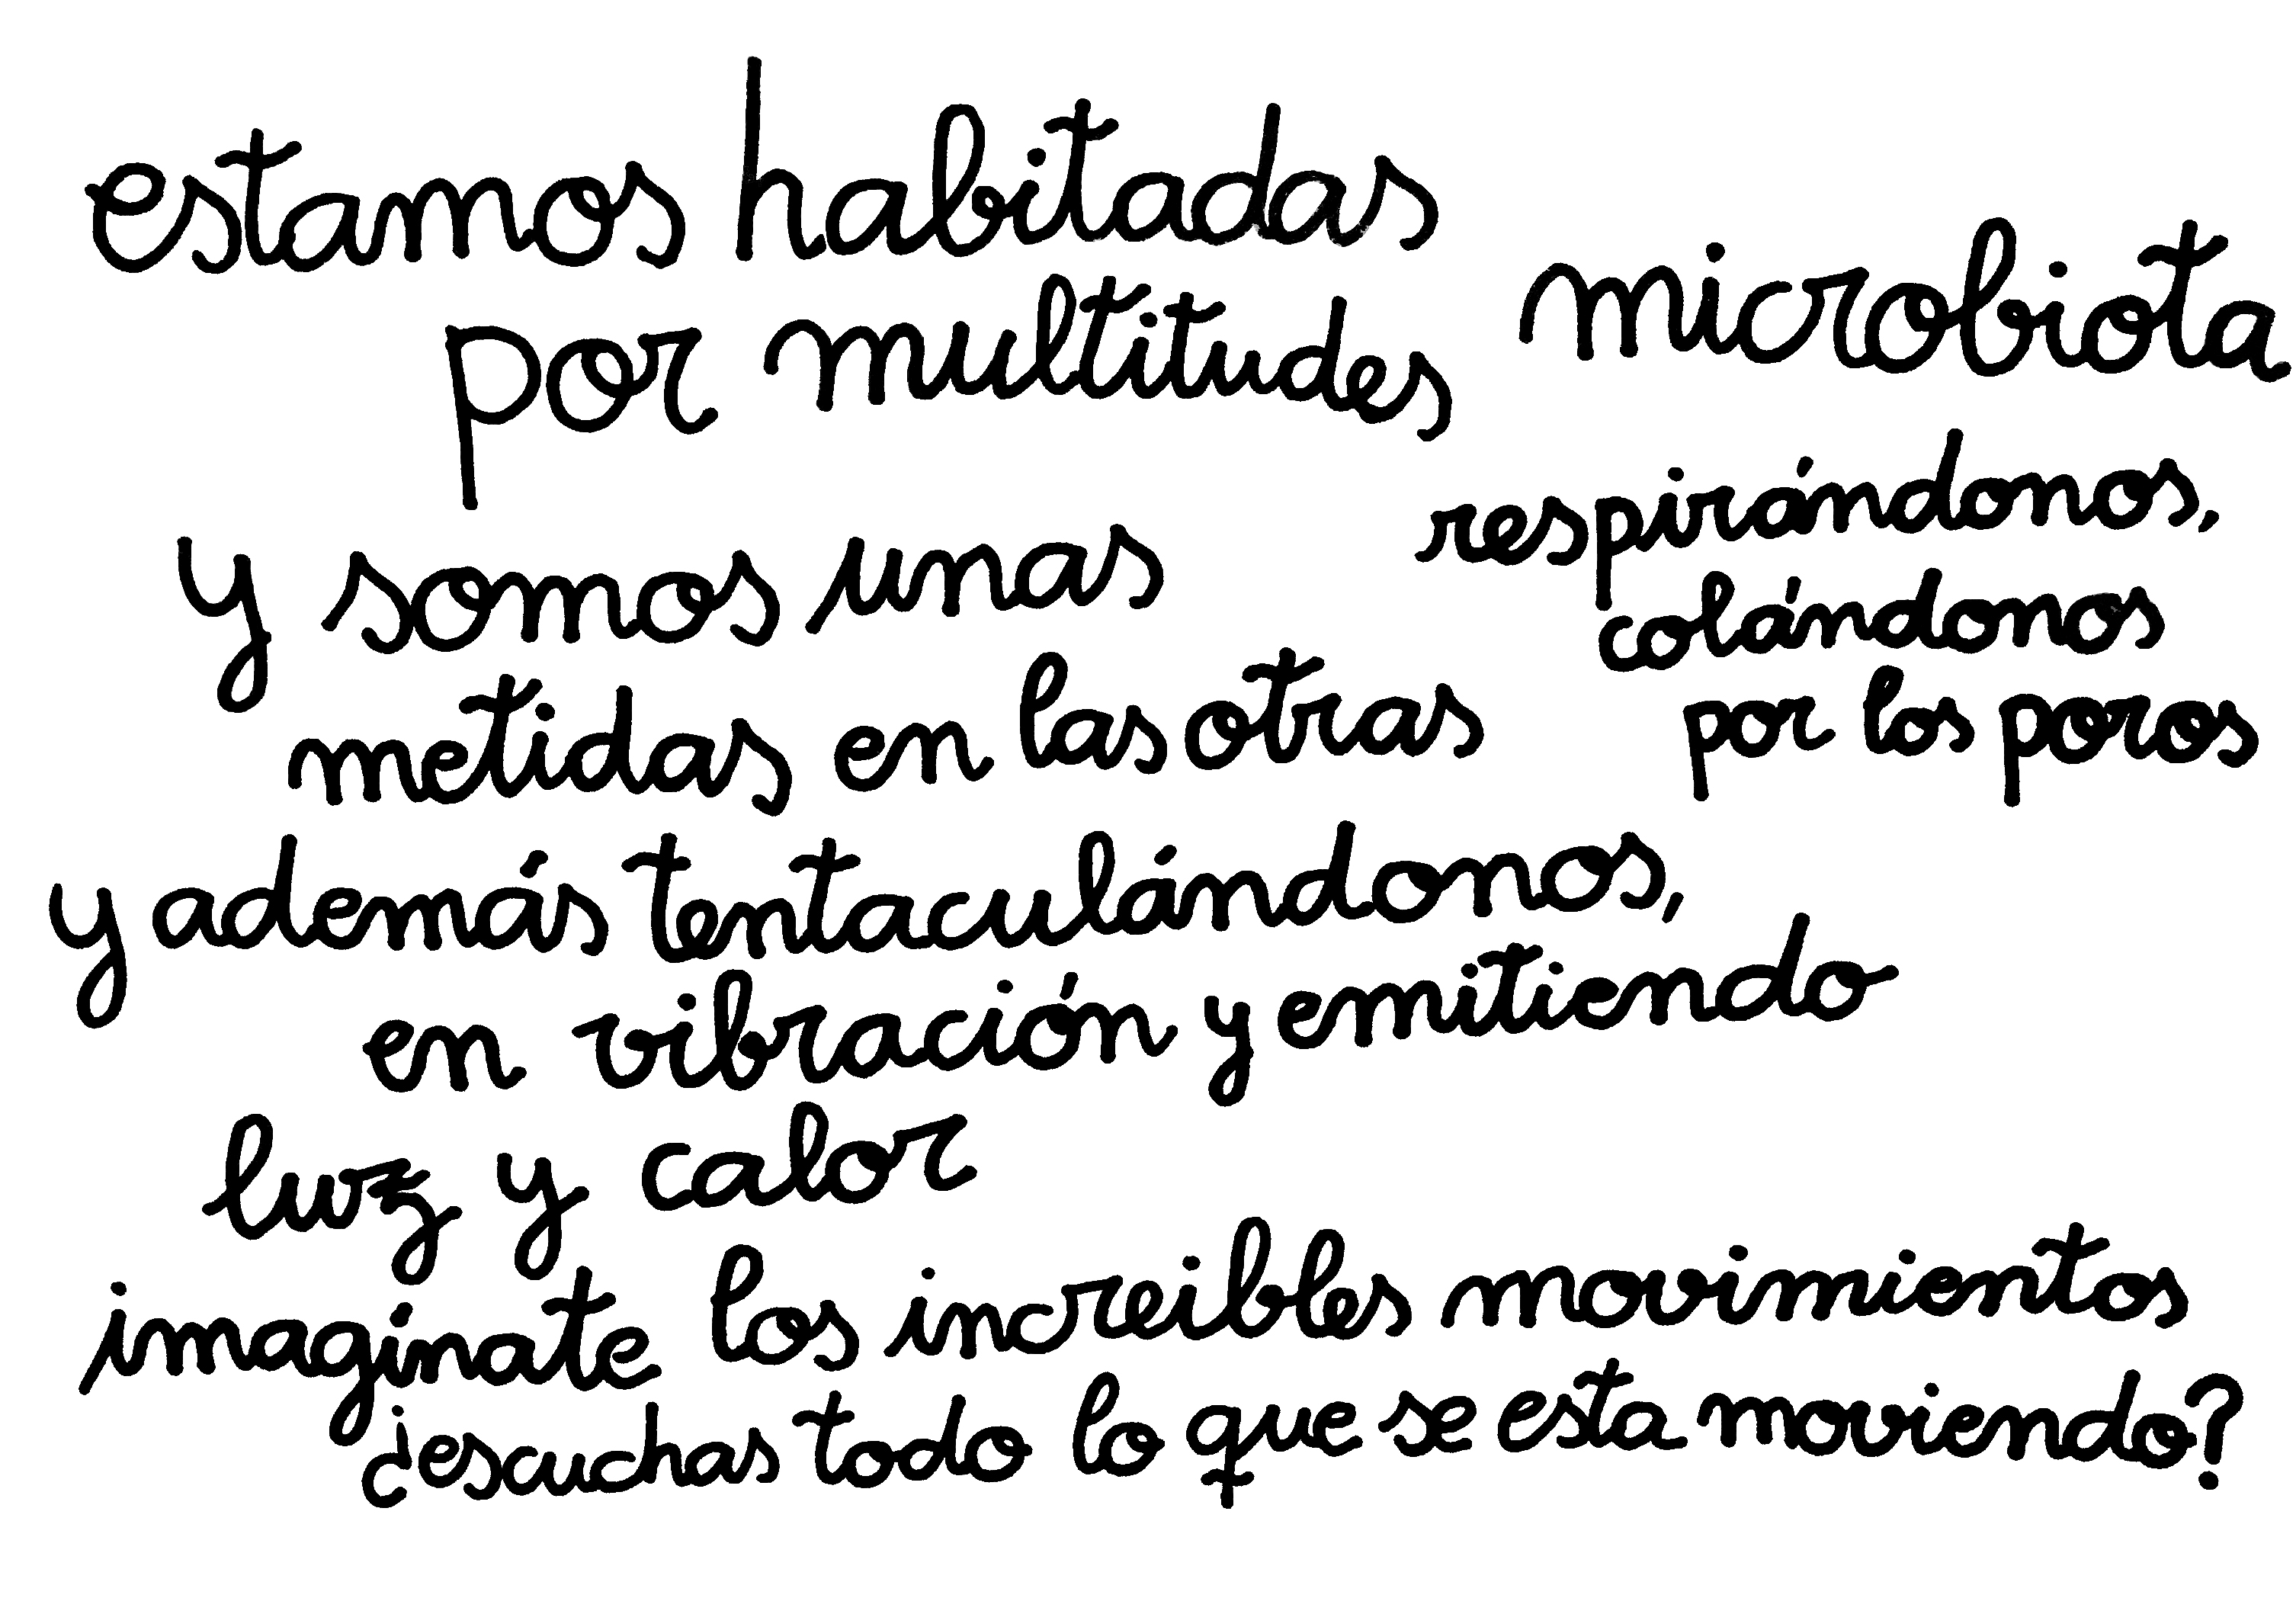 estamos habitadas
por multitudes
microbiota
y somos unas
metidas en las otras
respirándonos,
colándonos
por los poros
y además tentaculándonos,
en vibración y emitiendo
luz y calor
imagínate los increibles movimientos
¿escuchas todo lo que se esta moviendo?